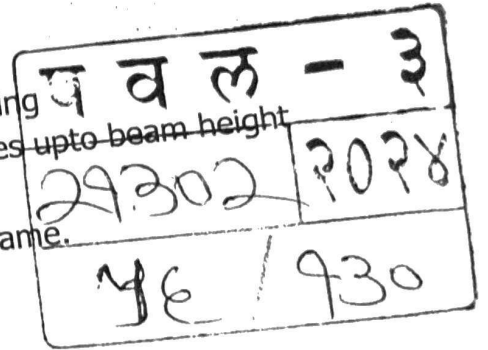 ing
पवल - ३
es upto beam height
२१३०२ २०२४
ame.
५६ / १३०